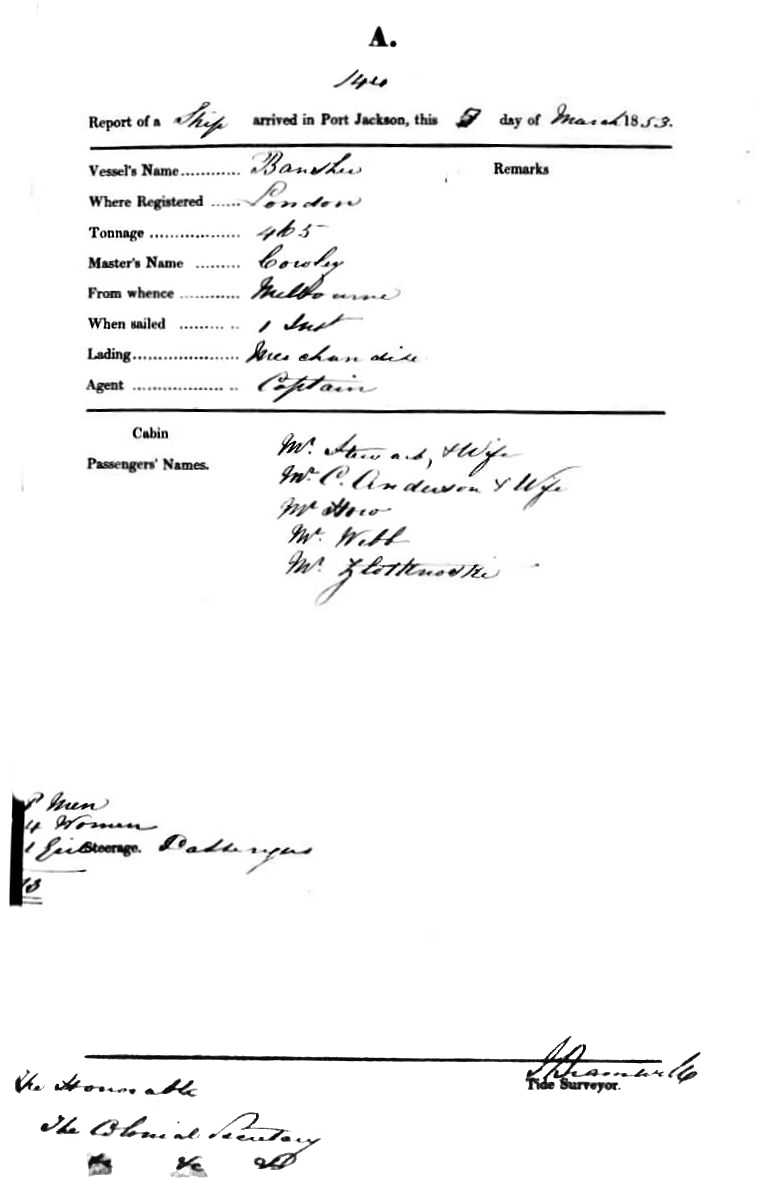 A.
140
Report of a Ship arrived in Port Jackson, this 7 day of March 1853.
Vessel's Name............ Banshee Remarks
Where Registered ...... London
Tonnage .................. 465
Master's Name ......... Cowley
From whence ............ Melbourne
When sailed ......... .. 1 Inst
Lading..................... Merchandise
Agent .................. .. Captain
Cabin
Passengers' Names.
Mr. Stewart, & Wife
Mr. C. Anderson & Wife
Mr How
Mr. Webb
Mr.
8 Men
4 Women
1 Girl Steerage. Passengers
13
Tide Surveyor.
The Honorable
The Colonial Secretary
&c &c &c